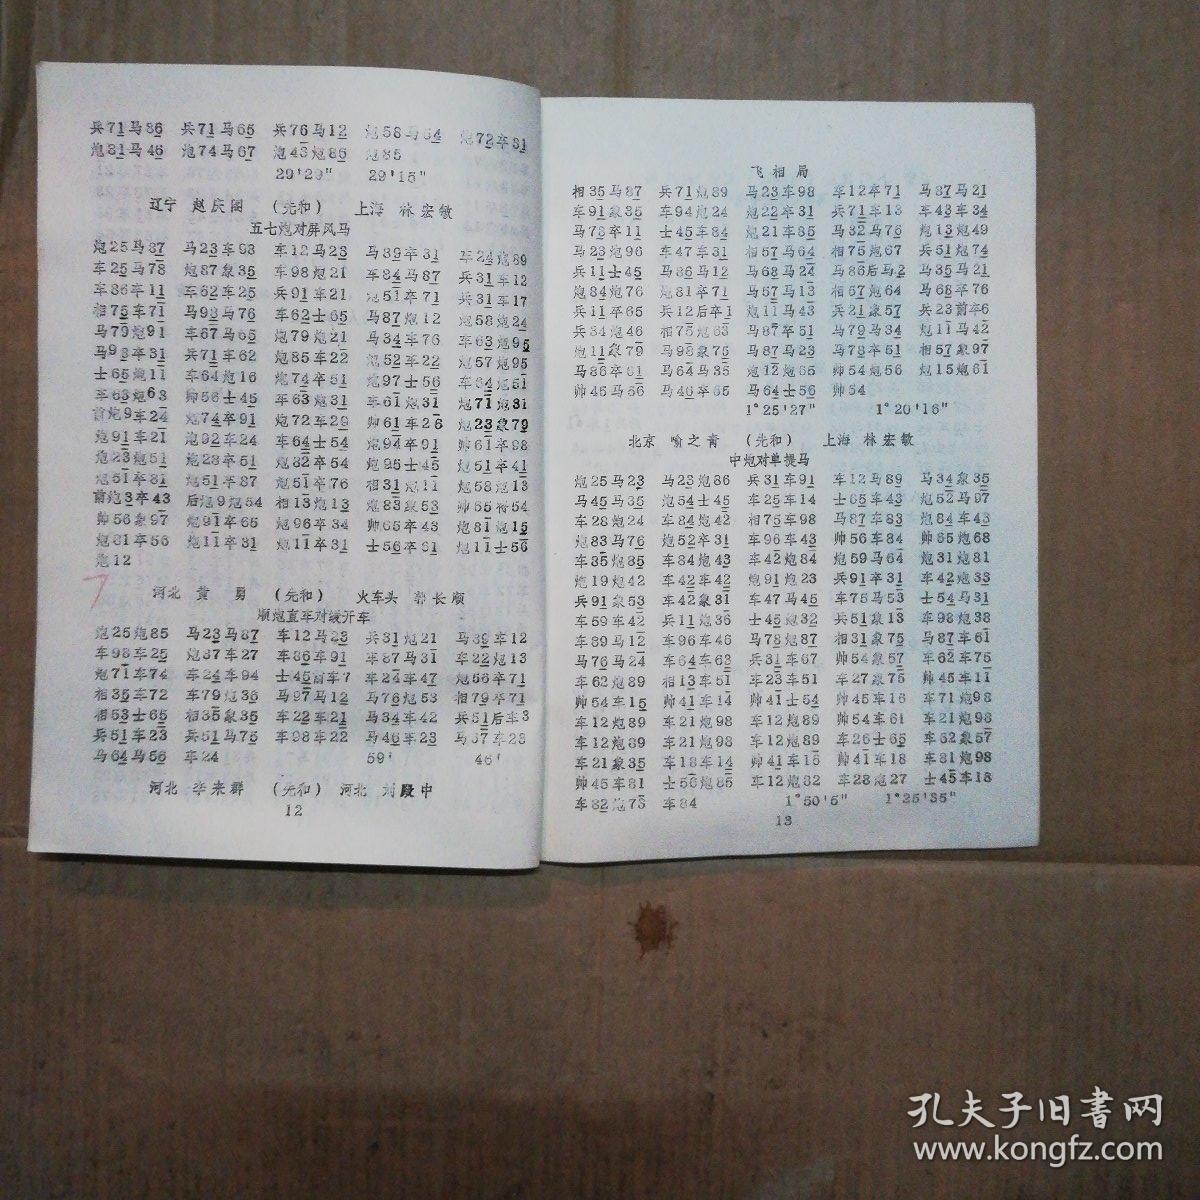 兵71马86 兵71马65 兵76马12 炮58马54 炮72卒31
炮81马46 炮74马67 炮43炮86 炮85
29'29" 29'15"
辽宁 赵庆阁 (先和) 上海 林宏敏
五七炮对屏风马
炮25马87 马23车98 车12马23 马89卒31 车24炮89
车25马78 炮87象35 车98炮21 车84马87 兵31车12
车86卒11 车62车25 兵91车21 炮51卒71 兵31车17
相75车71 马98马76 车62士65 马87炮12 炮58炮24
马79炮91 车67马65 炮79炮21 马34车76 车63炮95
马98卒31 兵71车62 炮85车22 炮52车22 炮57炮95
士65炮11 车64炮16 炮74卒51 炮97士56 车64炮51
车63炮63 帅56士45 车63炮31 车61炮31 炮71炮31
前炮9车24 炮74卒91 炮72车29 帅61车26 炮23象79
炮91车21 炮92车24 车64士54 炮94卒91 帅61卒98
炮23炮51 炮28卒51 炮82卒54 炮95士45 炮51卒41
炮51卒81 炮51卒87 炮51卒76 相31炮11 炮58炮13
前炮3卒43 后炮9炮54 相13炮13 炮83象53 帅65将54
帅56象97 炮91卒65 炮96卒34 帅65卒43 炮81炮15
炮81卒56 炮11卒31 炮11卒31 士56卒91 炮11士56
炮12
河北 黄勇 (先和) 火车头 郭长顺
顺炮直车对缓开车
炮25炮85 马23马87 车12马23 兵31炮21 马89车12
车98车25 炮87车27 车86车91 车87马31 车22炮13
炮71车74 车24车94 士45前车7 车24车47 炮56卒71
相35车72 车79炮36 马97马12 马76炮53 相79卒71
相53士65 相35象35 车22车21 马34车42 兵51后车3
兵51车23 兵51马75 车98车22 马46车23 马67车23
马64马56 车24 59' 46'
河北 李来群 (先和) 河北 刘殿中
12
飞相局
相35马87 兵71炮89 马23车98 车12卒71 马87马21
车91象35 车94炮24 炮22卒31 兵71车13 车43车34
马78卒11 士45车84 炮21车85 马32马76 炮13炮49
马23炮96 车47车31 相57马64 相75炮67 兵51炮74
兵11士45 马86马12 马68马24 马86后马2 马35马21
炮84炮76 炮81卒71 马57马13 相67炮64 马68卒76
兵11卒65 兵12后卒1 炮11马43 兵21象57 兵23前卒6
兵34炮46 相75炮63 马87卒51 马79马34 炮11马42
炮11象79 马98象75 马87马23 马78卒51 相57象97
马86卒61 马64马35 炮12炮65 帅54炮56 炮15炮61
帅45马56 马46卒65 马64士56 帅54
1°25'27" 1°20'16"
北京 喻之青 (先和) 上海 林宏敏
中炮对单提马
炮25马23 马23炮86 兵31车91 车12马89 马34象35
马45马35 炮54士45 车25车14 士65车43 炮52马97
车28炮24 车84炮42 相75车98 马87车83 炮84车43
炮83马76 炮52卒31 车96车43 帅56车84 帅65炮68
车35炮85 车84炮43 车42炮84 炮59马64 炮31炮81
炮19炮42 车42车42 炮91炮23 兵91卒31 车42炮33
兵91象53 车42象31 车47马45 车75马53 士54马31
车59车42 兵11炮36 士45炮32 兵51象13 车98炮38
车89马12 车96车46 马78炮87 相31象75 马87车61
马76马24 车64车63 兵31车67 帅54象57 车62车75
车62炮89 相13车51 车23车51 车27象75 帅45车11
帅54车15 帅41车14 帅41士54 帅45车16 车71炮98
车12炮89 车21炮98 车12炮89 帅54车61 车21炮98
车12炮89 车21炮98 车12炮89 车26士65 车62象57
车21象35 车18车14 帅41车15 帅41车18 车81炮98
帅45车81 士56炮85 车12炮82 车28炮27 士45车18
车82炮78 车84 1°50'5" 1°25'35"
13
孔夫子旧書网
www.kongfz.com